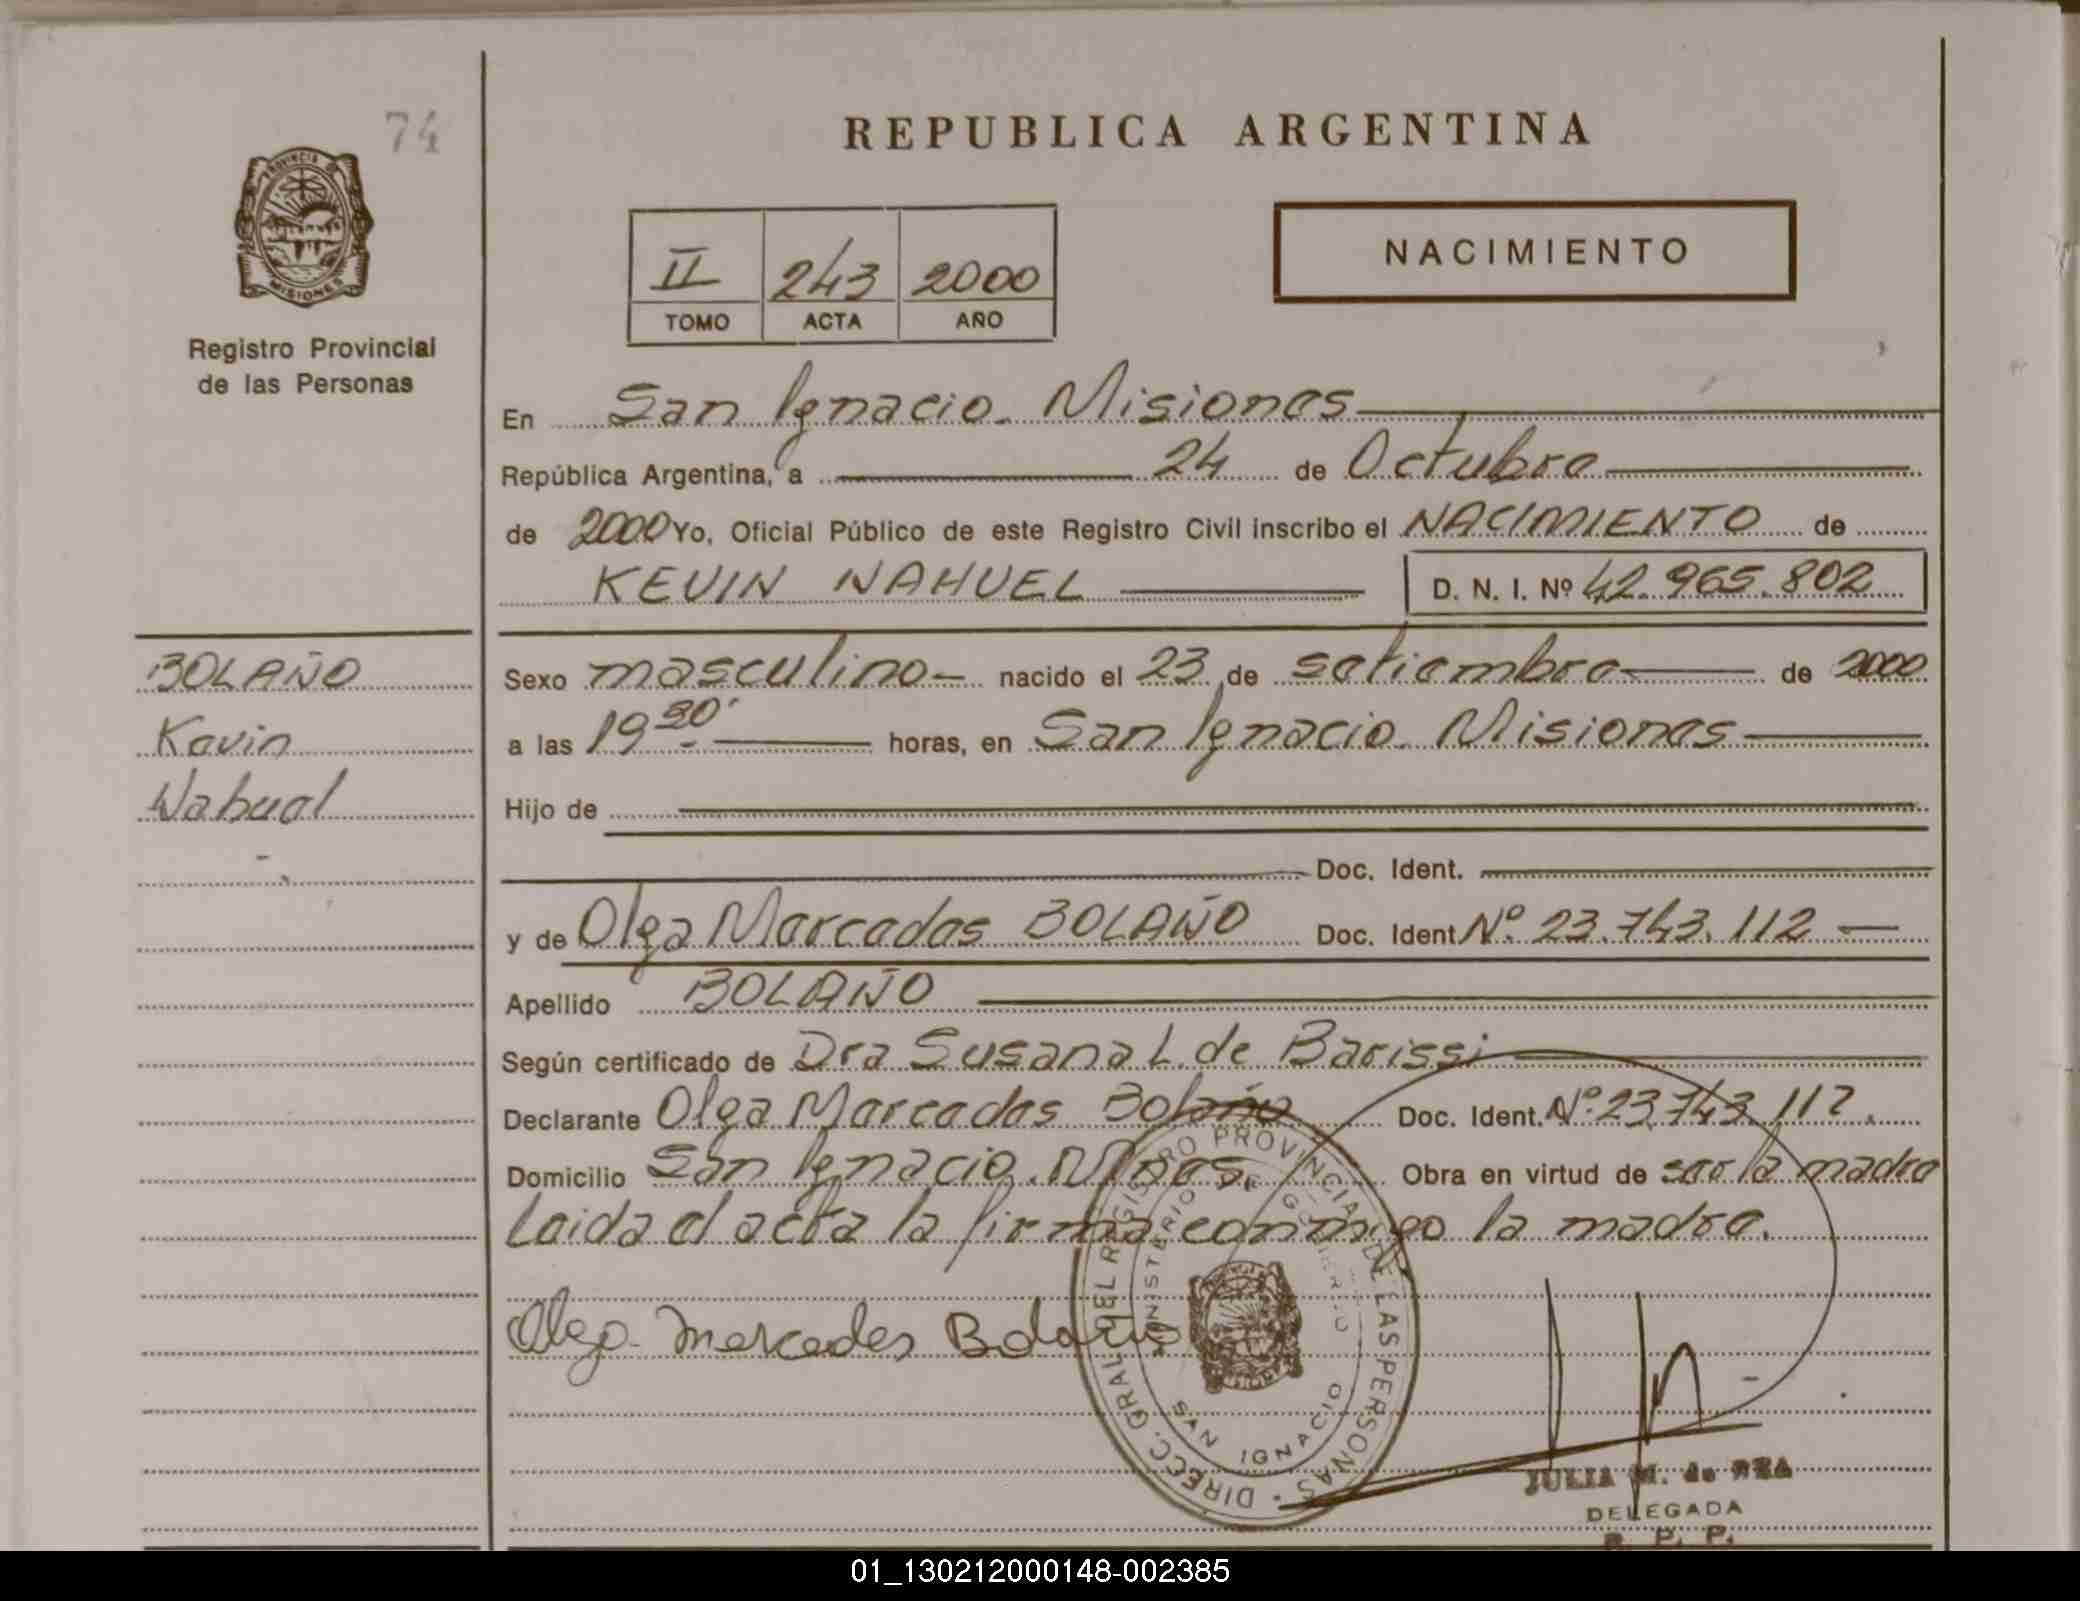 74
PROVINCIA DE
MISIONES
Registro Provincial
de las Personas
REPUBLICA ARGENTINA
II 243 2000
TOMO ACTA AÑO
NACIMIENTO
En San Ignacio. Misiones
República Argentina, a 24 de Octubre
de 2000 Yo, Oficial Público de este Registro Civil inscribo el NACIMIENTO de
KEVIN NAHUEL D. N. I. Nº 42.965.802
BOLAÑO
Kevin
Nahuel
Sexo masculino nacido el 23 de setiembre de 2000
a las 19 horas, en San Ignacio. Misiones
Hijo de
Doc. Ident.
y de Olga Mercedes BOLAÑO Doc. Ident Nº. 23.743.112
Apellido BOLAÑO
Según certificado de Dra Susana L. de Barissi
Declarante Olga Mercedes Bolaño Doc. Ident. Nº. 23.743.112.
Domicilio San Ignacio. Mnes. Obra en virtud de ser la madre
Leida el acta la firma conmigo la madre.
Olga Mercedes Bolaño
DIRECC. GRAL. DEL REGISTRO PROVINCIAL DE LAS PERSONAS
MINISTERIO DE GOBIERNO
SAN IGNACIO
JULIA M. de
DELEGADA
R. P. P.
01_130212000148-002385